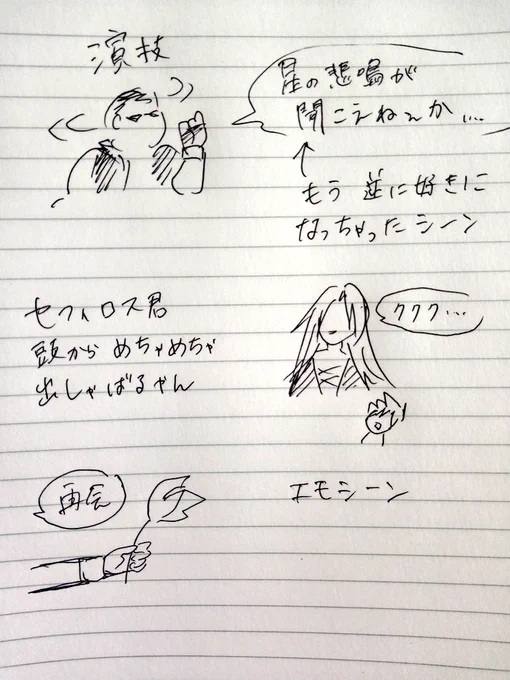 演技
星の悲鳴が
聞こえねぇか…
↑
もう逆に好きに
なっちゃったシーン
セフィロス君
頭からめちゃめちゃ
出しゃばるやん
ククク…
再会
エモシーン